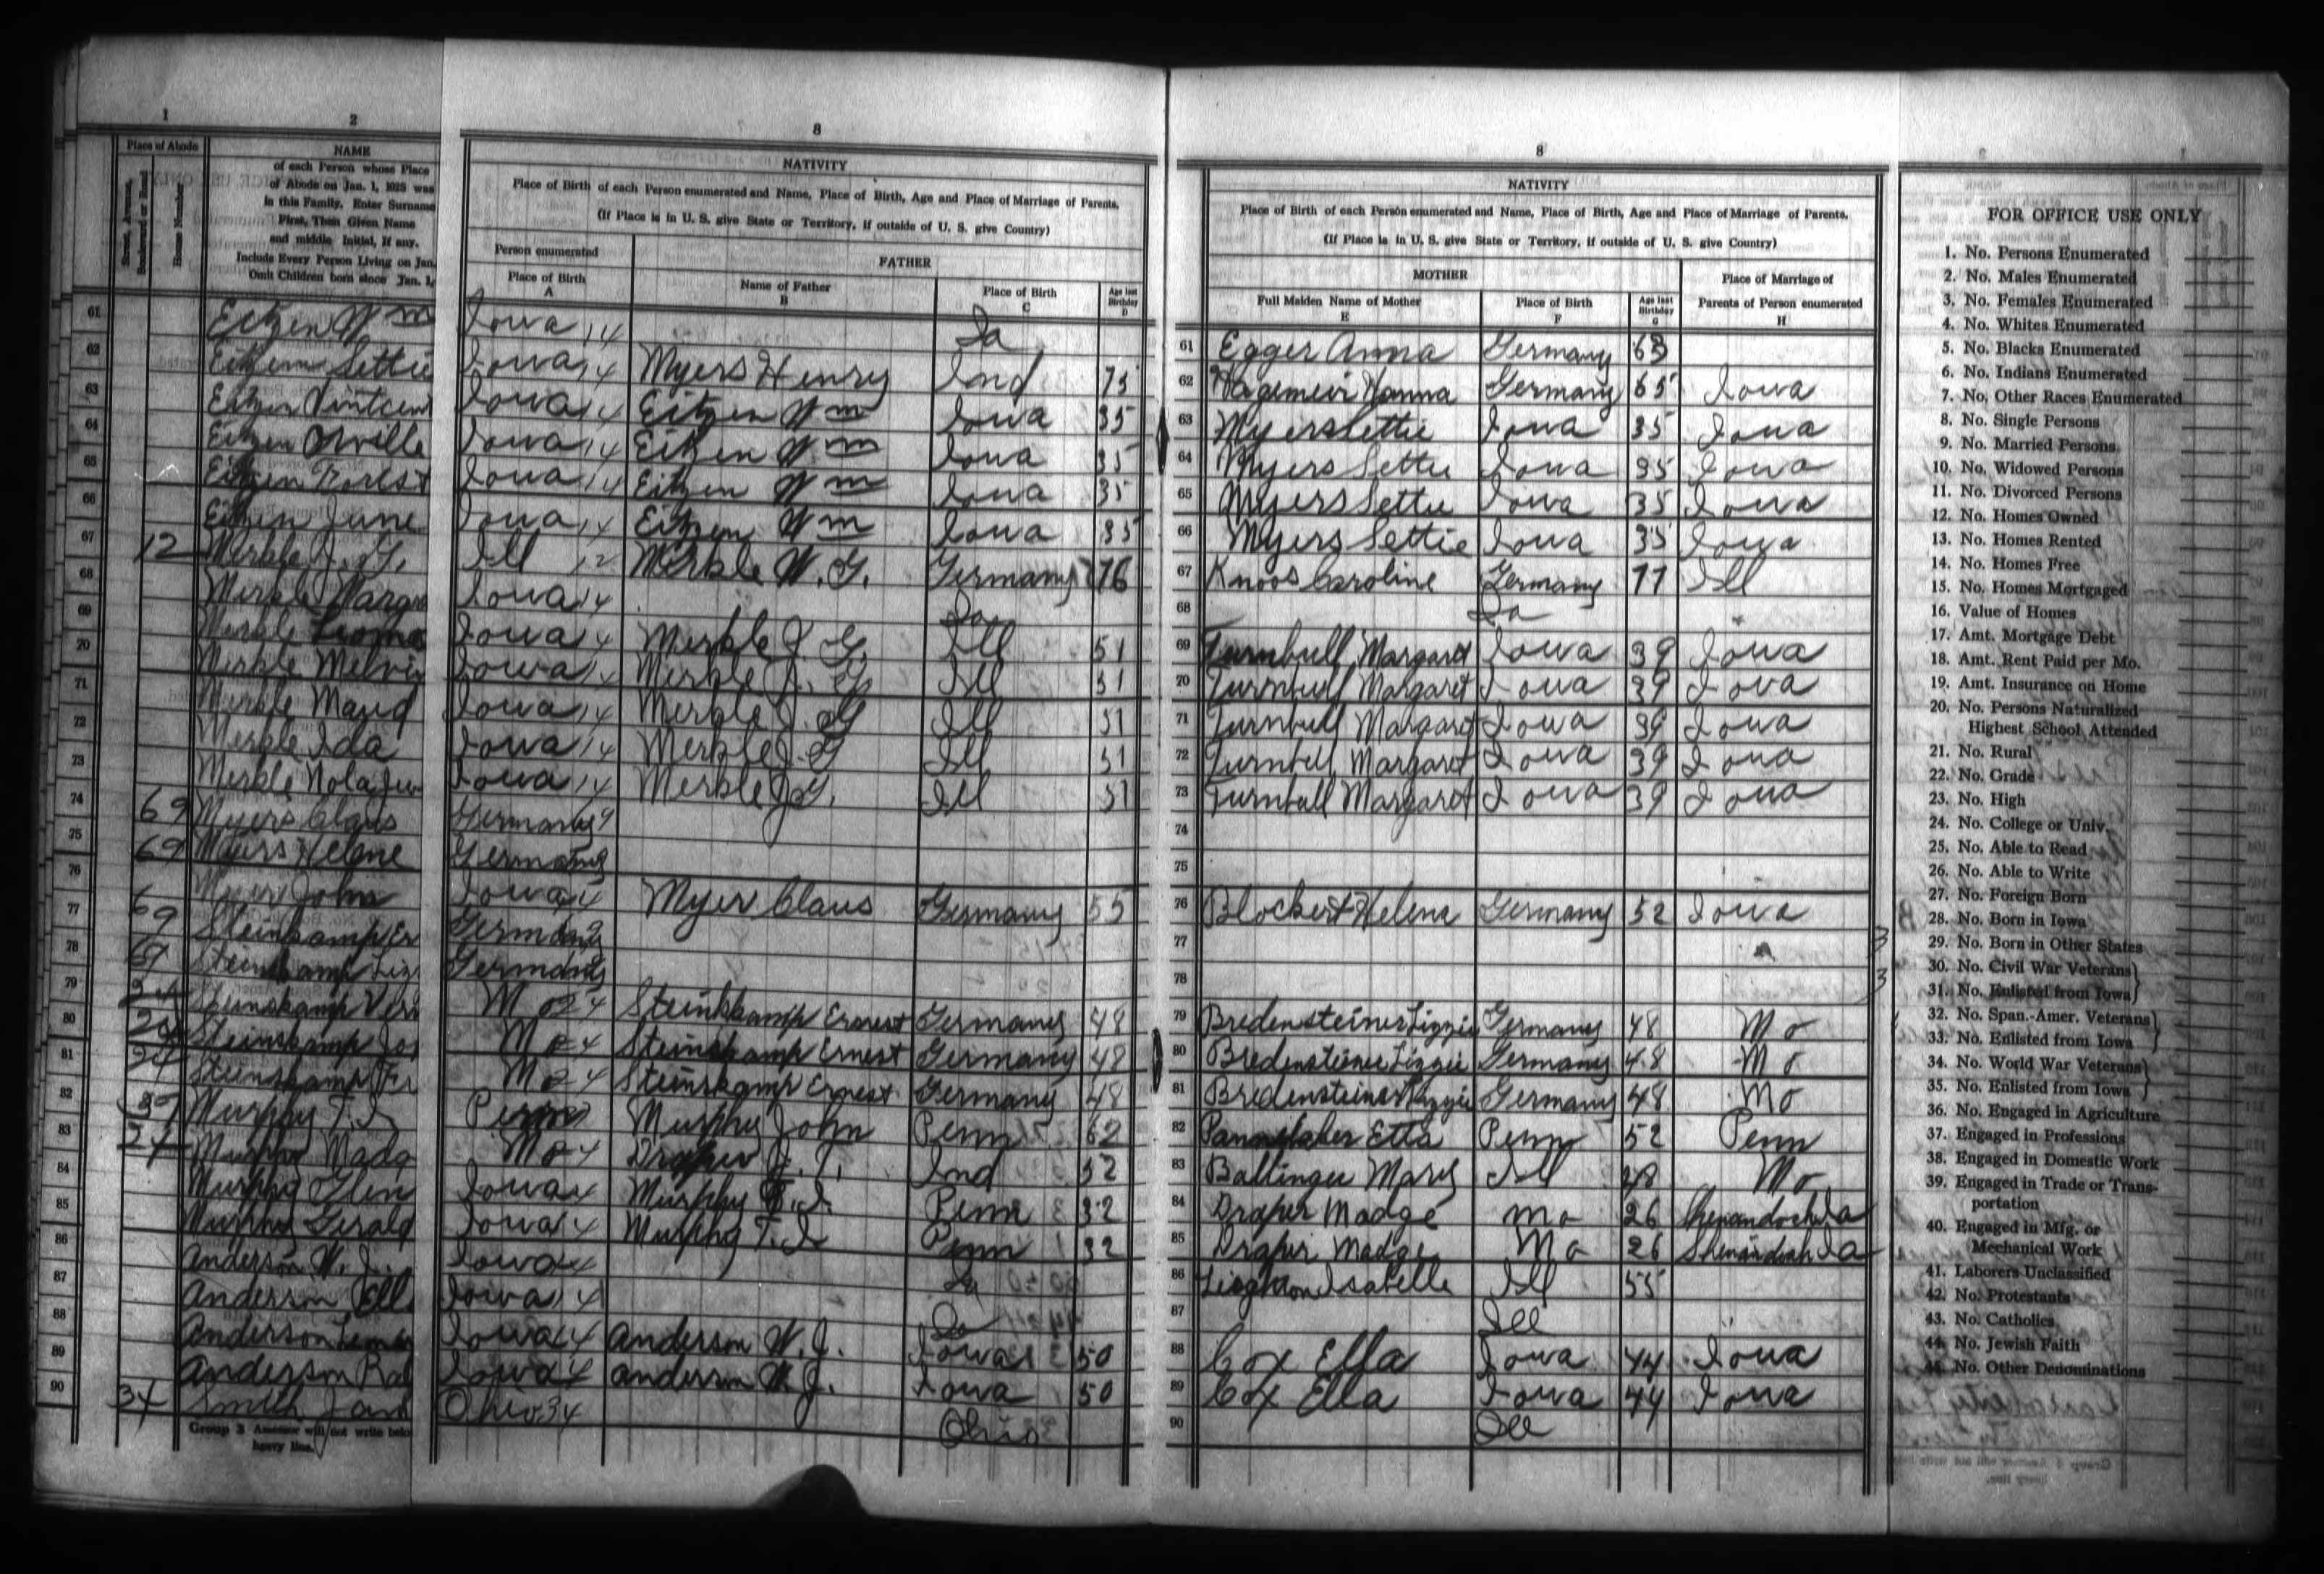 1 2 8 8
Place of Abode
Street, Avenue, Boulevard or Road
Home Number
NAME
of each Person whose Place
of Abode on Jan. 1, 1925 was
in this Family. Enter Surname
First, Then Given Name
and middle Initial, if any.
Include Every Person Living on Jan.
Omit Children born since Jan. 1,
NATIVITY
Place of Birth of each Person enumerated and Name, Place of Birth, Age and Place of Marriage of Parents.
(If Place is in U. S. give State or Territory, if outside of U. S. give Country)
Person enumerated
Place of Birth
A
FATHER
Name of Father
B
Place of Birth
C
Age last Birthday
D
NATIVITY
Place of Birth of each Person enumerated and Name, Place of Birth, Age and Place of Marriage of Parents.
(If Place is in U. S. give State or Territory, if outside of U. S. give Country)
MOTHER
Full Maiden Name of Mother
E
Place of Birth
F
Age last Birthday
G
Place of Marriage of
Parents of Person enumerated
H
61 Eitzen Wm Iowa 14 Ia 61 Egger Anna Germany 63
62 Eitzen Lettie Iowa 14 Myers Henry Ind 75 62 Hanna Germany 65 Iowa
63 Eitzen Iowa 14 Eitzen Wm Iowa 35 63 Myers Lettie Iowa 35 Iowa
64 Eitzen Orville Iowa 14 Eitzen Wm Iowa 35 64 Myers Lettie Iowa 35 Iowa
65 Eitzen Forest Iowa 14 Eitzen Wm Iowa 35 65 Myers Lettie Iowa 35 Iowa
66 Eitzen June Iowa 14 Eitzen Wm Iowa 35 66 Myers Lettie Iowa 35 Iowa
67 12 Merkle J. G. Ill 12 Merkle W. G. Germany 76 67 Knoos Caroline Germany 77 Ill
68 Merkle Marga Iowa 14 Ia 68 Ia
69 Merkle Leoma Iowa 14 Merkle J. G. Ill 51 69 Turnbull Margaret Iowa 39 Iowa
70 Merkle Melvin Iowa 14 Merkle J. G. Ill 51 70 Turnbull Margaret Iowa 39 Iowa
71 Merkle Maud Iowa 14 Merkle J. G Ill 51 71 Turnbull Margaret Iowa 39 Iowa
72 Merkle Ida Iowa 14 Merkle J. G Ill 51 72 Turnbull Margaret Iowa 39 Iowa
73 Merkle Nola Iowa 14 Merkle J. G. Ill 51 73 Turnbull Margaret Iowa 39 Iowa
74 69 Myers Claus Germany 74
75 69 Myers Helene Germany 75
76 Myers John Iowa 14 Myer Claus Germany 55 76 Blockert Helena Germany 52 Iowa
77 69 Steinkamp Er Germany 77
78 69 Steinkamp Liz Germany 78
79 24 Steinskamp Ver Mo 24 Steinkamp Ernest Germany 48 79 Bredensteiner Lizzie Germany 48 Mo
80 24 Steinskamp Jos Mo 24 Steinskamp Ernest Germany 48 80 Bredensteiner Lizzie Germany 48 Mo
81 24 Steinskamp Fr Mo 24 Steinskamp Ernest Germany 48 81 Bredensteiner Lizzie Germany 48 Mo
82 37 Murphy T. I. Penn Murphy John Penn 62 82 Etta Penn 52 Penn
83 24 Murphy Madg Mo 24 Draper J. T. Ind 52 83 Baltinger Mary Ill 48 Mo
84 Murphy Glen Iowa 14 Murphy T. I. Penn 32 84 Draper Madge Mo 26 Shenandoah Ia
85 Murphy Gerald Iowa 14 Murphy T. I. Penn 32 85 Draper Madge Mo 26 Shenandoah Ia
86 Anderson W. J. Iowa 14 Ia 86 Leighton Isabelle Ill 55
87 Anderson Ella Iowa 14 Ia 87 Ill
88 Anderson Iowa 14 Anderson W. J. Iowa 50 88 Cox Ella Iowa 44 Iowa
89 Anderson Ral Iowa 14 Anderson W. J. Iowa 50 89 Cox Ella Iowa 44 Iowa
90 34 Smith Jan Ohio 34 Ohio 90 Ill
Group 3 Assessor will not write below
heavy line.
FOR OFFICE USE ONLY
1. No. Persons Enumerated
2. No. Males Enumerated
3. No. Females Enumerated
4. No. Whites Enumerated
5. No. Blacks Enumerated
6. No. Indians Enumerated
7. No. Other Races Enumerated
8. No. Single Persons
9. No. Married Persons
10. No. Widowed Persons
11. No. Divorced Persons
12. No. Homes Owned
13. No. Homes Rented
14. No. Homes Free
15. No. Homes Mortgaged
16. Value of Homes
17. Amt. Mortgage Debt
18. Amt. Rent Paid per Mo.
19. Amt. Insurance on Home
20. No. Persons Naturalized
Highest School Attended
21. No. Rural
22. No. Grade
23. No. High
24. No. College or Univ.
25. No. Able to Read
26. No. Able to Write
27. No. Foreign Born
28. No. Born in Iowa
29. No. Born in Other States
30. No. Civil War Veterans
31. No. Enlisted from Iowa
32. No. Span.-Amer. Veterans
33. No. Enlisted from Iowa
34. No. World War Veterans
35. No. Enlisted from Iowa
36. No. Engaged in Agriculture
37. Engaged in Professions
38. Engaged in Domestic Work
39. Engaged in Trade or Trans-
portation
40. Engaged in Mfg. or
Mechanical Work
41. Laborers Unclassified
42. No. Protestants
43. No. Catholics
44. No. Jewish Faith
45. No. Other Denominations